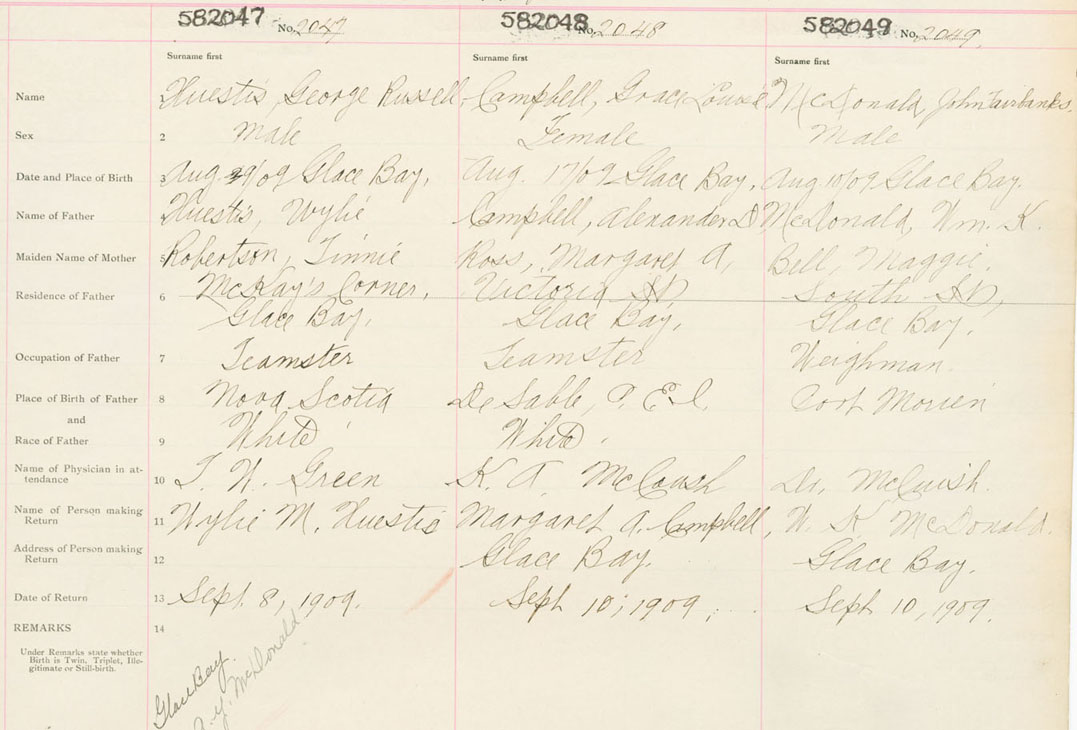 582047 No. 2047 582048 No. 2048 582049 No. 2049
Surname first Surname first Surname first
Name Huestis, George Russell Campbell, Grace Louise McDonald, John Fairbanks.
Sex 2 Male Female Male
Date and Place of Birth 3 Aug 29/09 Glace Bay. Aug. 17/09 Glace Bay. Aug 10/09 Glace Bay.
Name of Father Huestis, Wylie Campbell, Alexander D. McDonald, Wm. K.
Maiden Name of Mother 5 Robertson, Tinnie Ross, Margaret A. Bell, Maggie.
Residence of Father 6 McKay's Corner, Victoria St, South St,
Glace Bay. Glace Bay. Glace Bay.
Occupation of Father 7 Teamster Teamster Weighman.
Place of Birth of Father 8 Nova Scotia De Sable, P. E. I. Port Morien
and
Race of Father 9 White White
Name of Physician in at-
tendance 10 T. W. Green K. A. Dr. McCuish.
Name of Person making
Return 11 Wylie M. Huestis Margaret A. Campbell, W. K. McDonald.
Address of Person making
Return 12 Glace Bay. Glace Bay.
Date of Return 13 Sept. 8, 1909. Sept 10, 1909. Sept 10, 1909.
REMARKS 14
Under Remarks state whether
Birth is Twin, Triplet, Ille-
gitimate or Still-birth.
Glace Bay.
McDonald